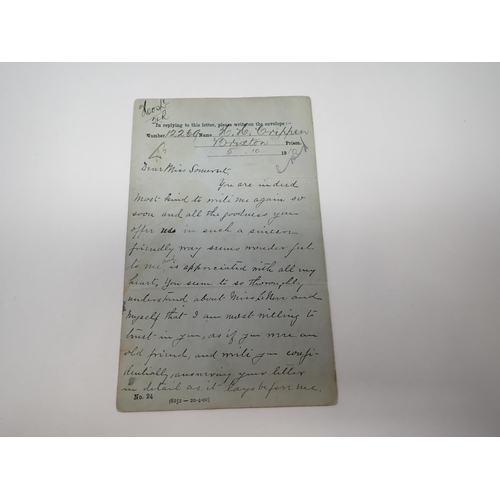 In replying to this letter, please write on the envelope:—
Number 12266 Name H. H. Crippen
Brixton Prison
5 . 10 19
Dear Miss Somerset,
You are indeed
most kind to write me again so
soon and all the goodness you
offer us in such a sincere
friendly way seems wonderful
to me & is appreciated with all my
heart. You seem to so thoroughly
understand about Miss Le Neve and
myself that I am most willing to
trust in you, as if you were an
old friend, and write you confi-
dentially, answering your letter
in detail as it lays before me.
No. 24 (6252 — 20-4-06)